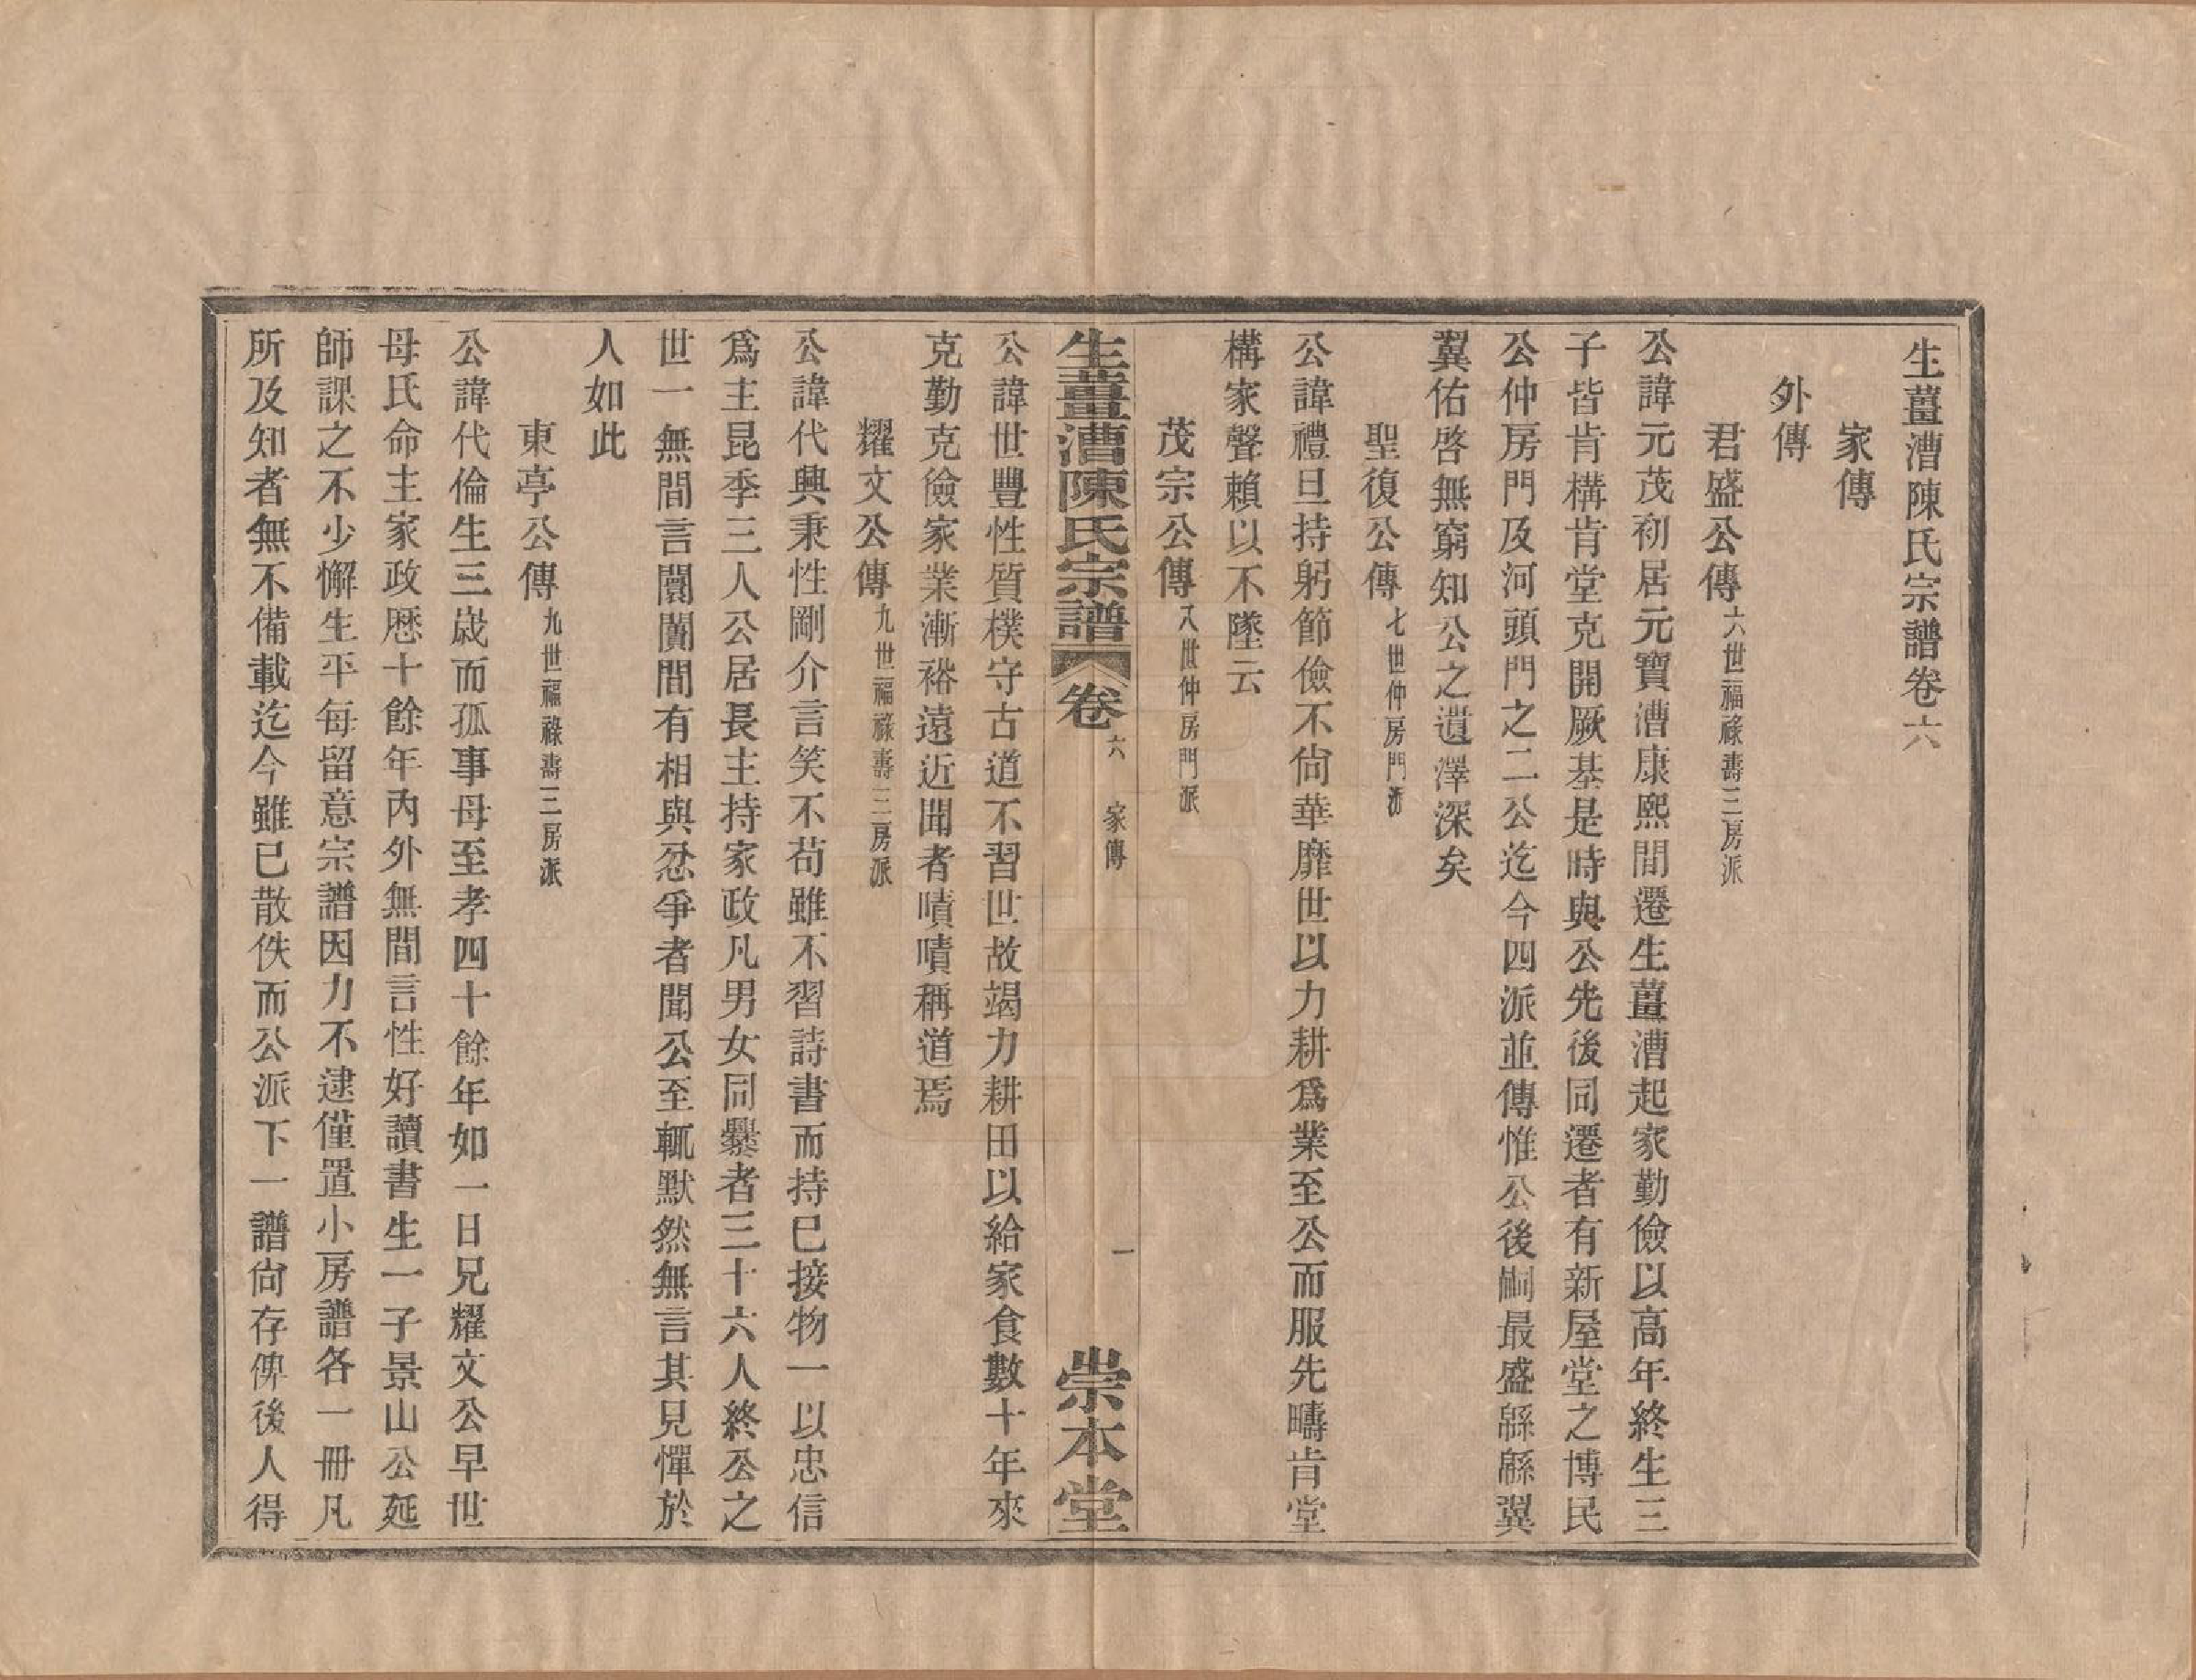 生薑漕陳氏宗譜卷六
家傳
外傳
君盛公傳六世福祿壽三房派
公諱元茂初居元寶漕康熙間遷生薑漕起家勤儉以高年終生三
子皆肯構肯堂克開厥基是時與公先後同遷者有新屋堂之博民
公仲房門及河頭門之二公迄今四派並傳惟公後嗣最盛緜緜翼
翼佑啓無窮知公之遺澤深矣
聖復公傳七世仲房門派
公諱禮旦持躬節儉不尙華靡世以力耕爲業至公而服先疇肯堂
構家聲賴以不墜云
茂宗公傳八世仲房門派
生薑漕陳氏宗譜 卷六 家傳 一 崇本堂
公諱世豐性質樸守古道不習世故竭力耕田以給家食數十年來
克勤克儉家業漸裕遠近聞者嘖嘖稱道焉
耀文公傳九世福祿壽三房派
公諱代興秉性剛介言笑不苟雖不習詩書而持已接物一以忠信
爲主昆季三人公居長主持家政凡男女同爨者三十六人終公之
世一無間言闤闠間有相與忿爭者聞公至輒默然無言其見憚於
人如此
東亭公傳九世福祿壽三房派
公諱代倫生三歲而孤事母至孝四十餘年如一日兄耀文公早世
母氏命主家政歷十餘年內外無間言性好讀書生一子景山公延
師課之不少懈生平每留意宗譜因力不逮僅置小房譜各一冊凡
所及知者無不備載迄今雖已散佚而公派下一譜尙存俾後人得